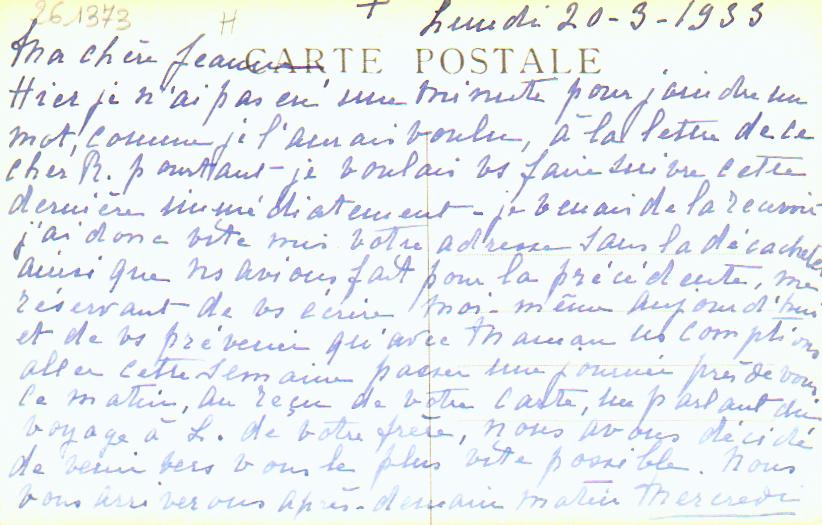 261373 H + Lundi 20-3-1933
CARTE POSTALE
Ma chère Jeanne
Hier je n'ai pas eu une minute pour joindre un
mot, comme je l'aurais voulu, à la lettre de ce
cher R. pourtant je voulais vs faire suivre cette
dernière immédiatement - je venais de la recevoir
j'ai donc vite mis votre adresse sans la décacheter
ainsi que ns avions fait pour la précédente, me
réservant de vs écrire moi-même aujourd'hui
et de vs prévenir qu'avec Maman ns comptions
aller cette semaine passer une journée près de vous
ce matin, au reçu de votre carte, me parlant du
voyage à L. de votre frère, nous avons décidé
de venir vers vous le plus vite possible. Nous
vous arriverons après-demain matin Mercredi